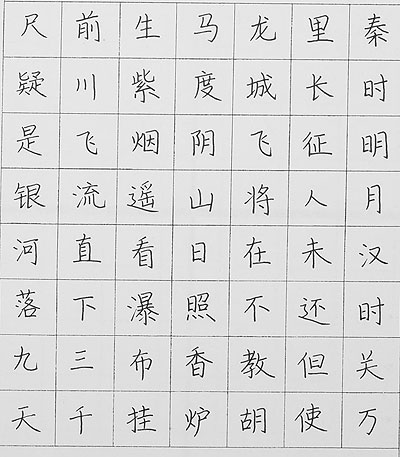 秦时明月汉时关万
里长征人未还但使
龙城飞将在不教胡
马度阴山日照香炉
生紫烟遥看瀑布挂
前川飞流直下三千
尺疑是银河落九天